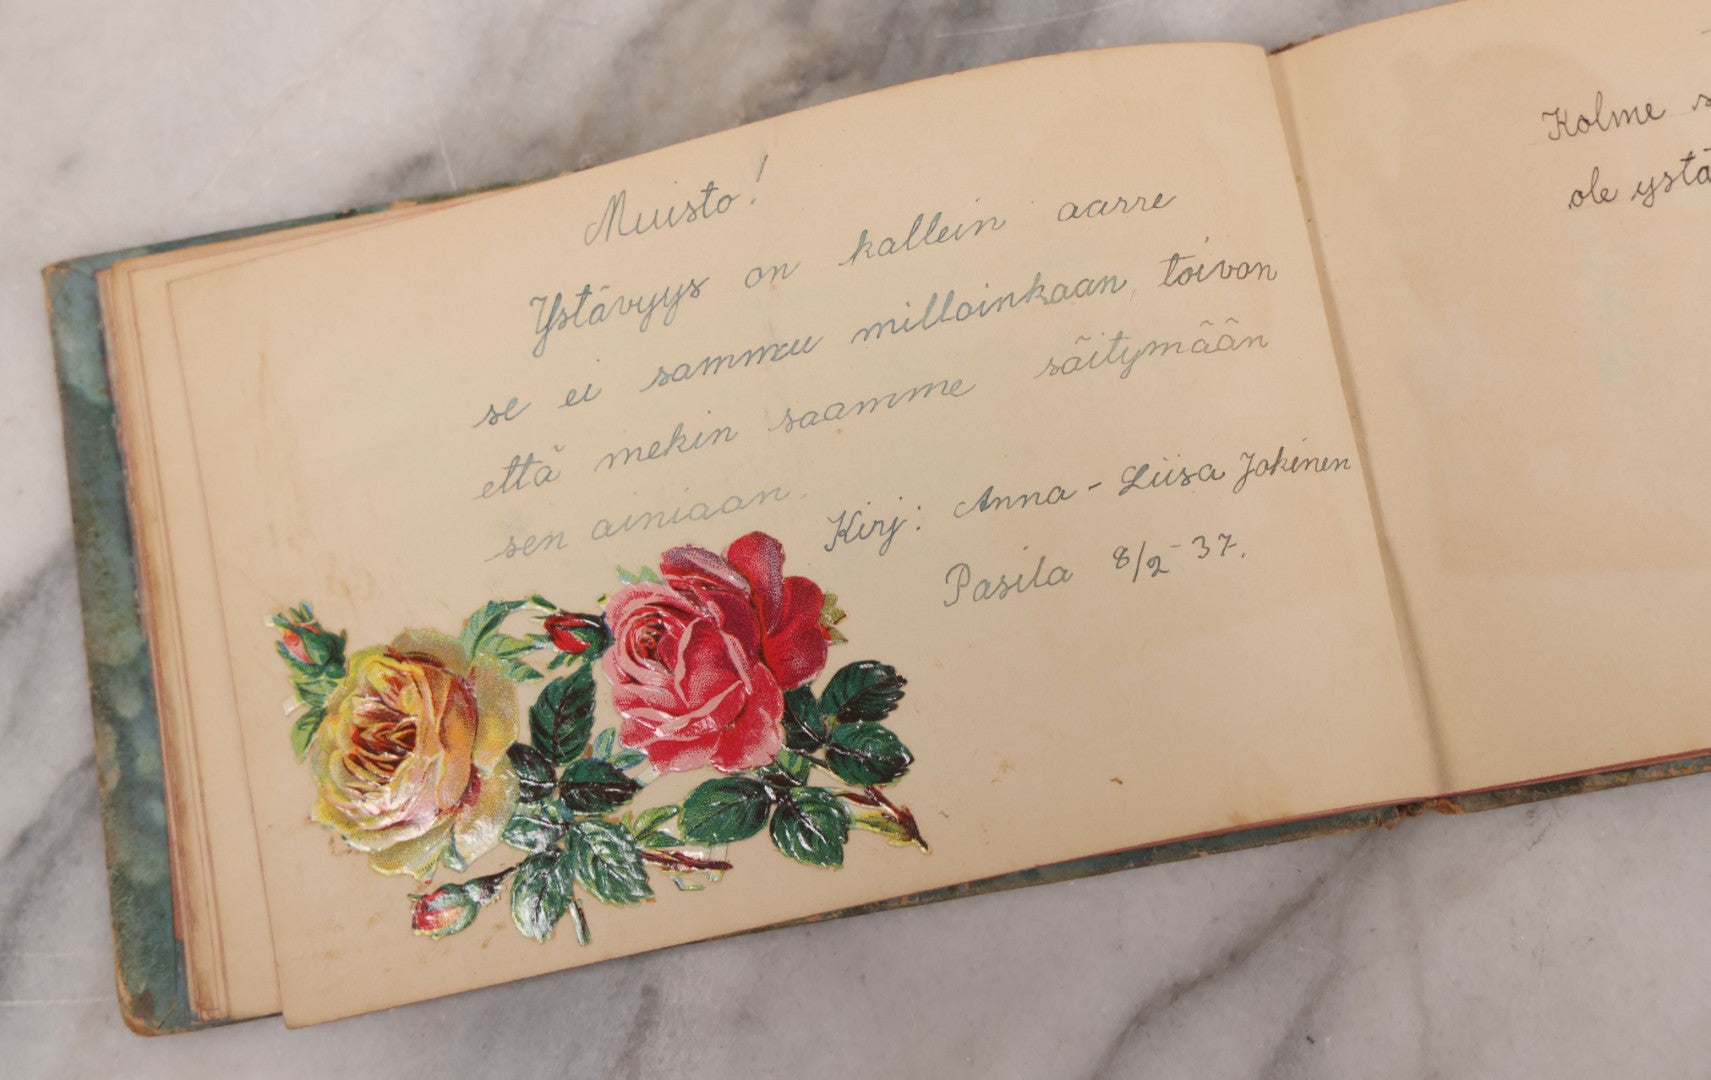 Muisto!
Ystävyys on kallein aarre
se ei sammu milloinkaan, toivon
että mekin saamme säitymään
sen ainiaan.
Kirj: Anna-Liisa Jokinen
Pasila 8/2-37.
Kolme s
ole ystä